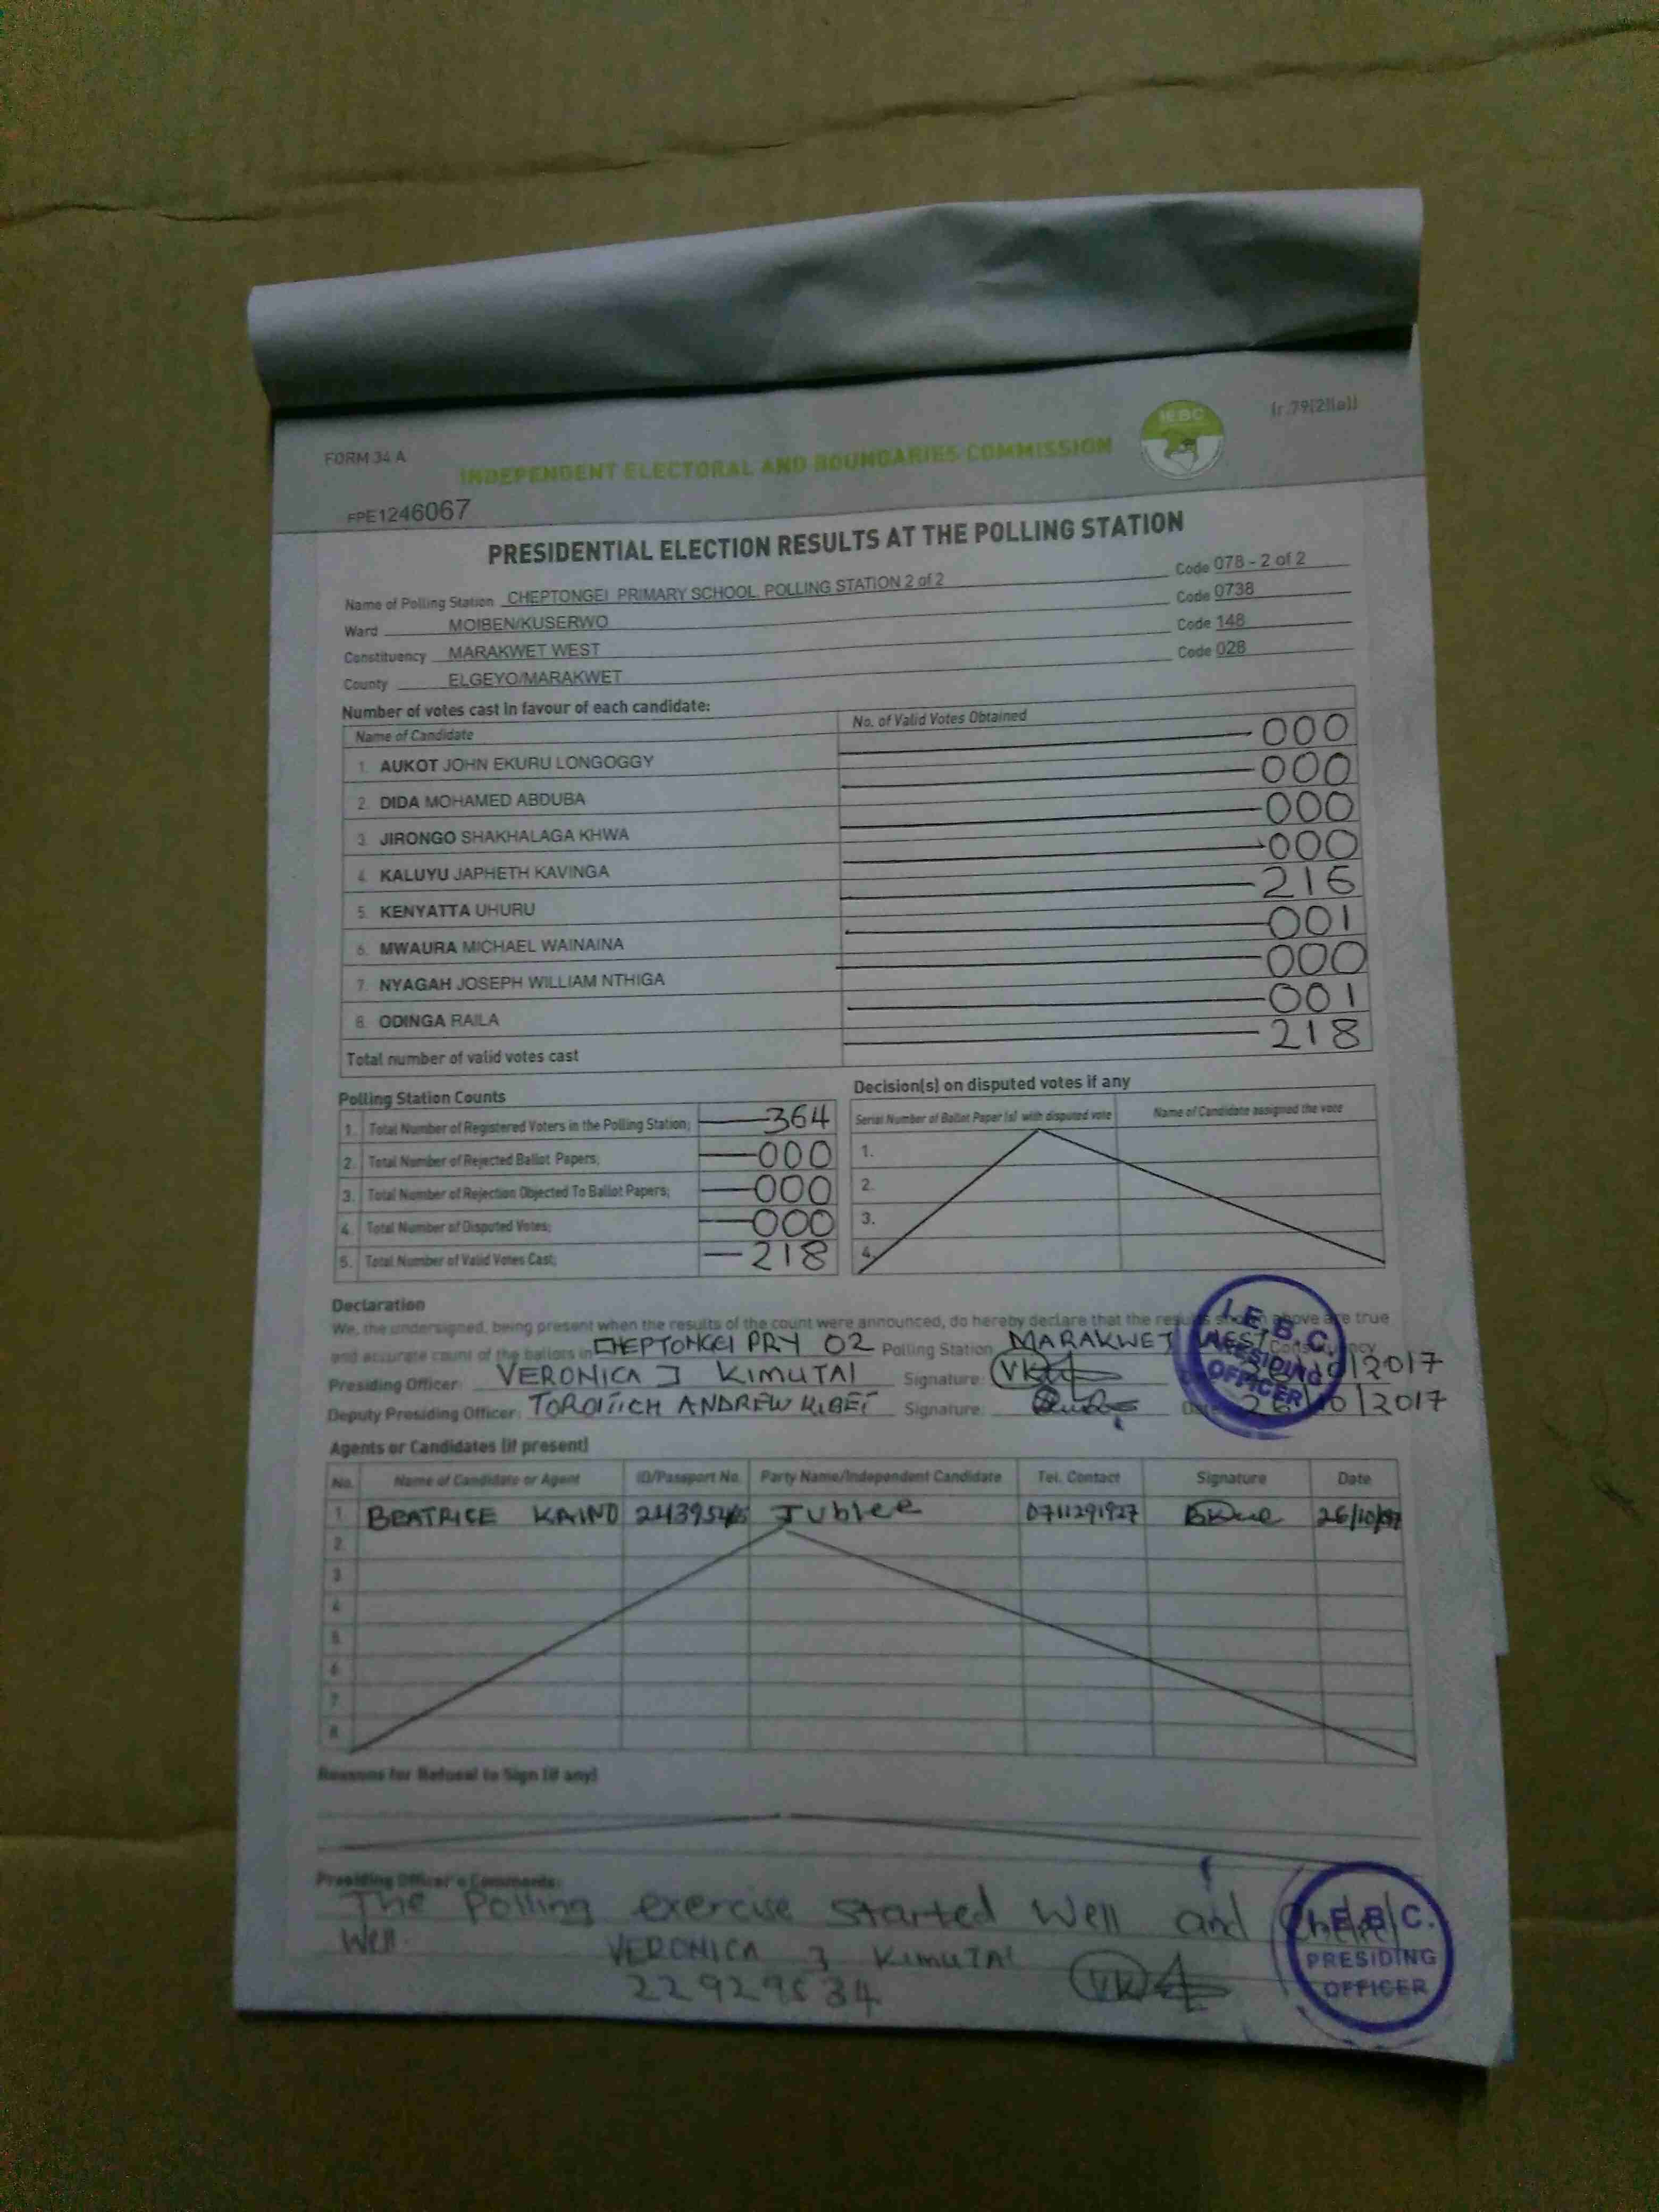 (r.79(2)(a))
IEBC
FORM 34 A
INDEPENDENT ELECTORAL AND BOUNDARIES COMMISSION
FPE1246067
PRESIDENTIAL ELECTION RESULTS AT THE POLLING STATION
Name of Polling Station CHEPTONGEI PRIMARY SCHOOL POLLING STATION 2 of 2 Code 078 - 2 of 2
Ward MOIBEN/KUSERWO Code 0738
Constituency MARAKWET WEST Code 148
County ELGEYO/MARAKWET Code 028
Number of votes cast in favour of each candidate:
Name of Candidate No. of Valid Votes Obtained
1. AUKOT JOHN EKURU LONGOGGY 000
2. DIDA MOHAMED ABDUBA 000
3. JIRONGO SHAKHALAGA KHWA 000
4. KALUYU JAPHETH KAVINGA 000
5. KENYATTA UHURU 216
6. MWAURA MICHAEL WAINAINA 001
7. NYAGAH JOSEPH WILLIAM NTHIGA 000
8. ODINGA RAILA 001
Total number of valid votes cast 218
Polling Station Counts
1. Total Number of Registered Voters in the Polling Station; 364
2. Total Number of Rejected Ballot Papers; 000
3. Total Number of Rejection Objected To Ballot Papers; 000
4. Total Number of Disputed Votes; 000
5. Total Number of Valid Votes Cast; 218
Decision(s) on disputed votes if any
Serial Number of Ballot Paper (s) with disputed vote Name of Candidate assigned the vote
1.
2.
3.
4.
Declaration
We, the undersigned, being present when the results of the count were announced, do hereby declare that the results shown above are true
and accurate count of the ballots in CHEPTONGEI PRY 02 Polling Station MARAKWET WEST Constituency
Presiding Officer: VERONICA J KIMUTAI Signature: VK 26/10/2017
Deputy Presiding Officer: TOROITICH ANDREW KIBET Signature: Date: 26/10/2017
I.E.B.C.
PRESIDING
OFFICER
Agents or Candidates (if present)
No. Name of Candidate or Agent ID/Passport No. Party Name/Independent Candidate Tel. Contact Signature Date
1 BEATRICE KAINO Jublee 0711291927 26/10/
2.
3
4
5
6
7
8
Reasons for Refusal to Sign (if any)
Presiding Officer's Comments:
The Polling exercise started Well and
Well.
VERONICA J KIMUTAI
VK
I.E.B.C.
PRESIDING
OFFICER